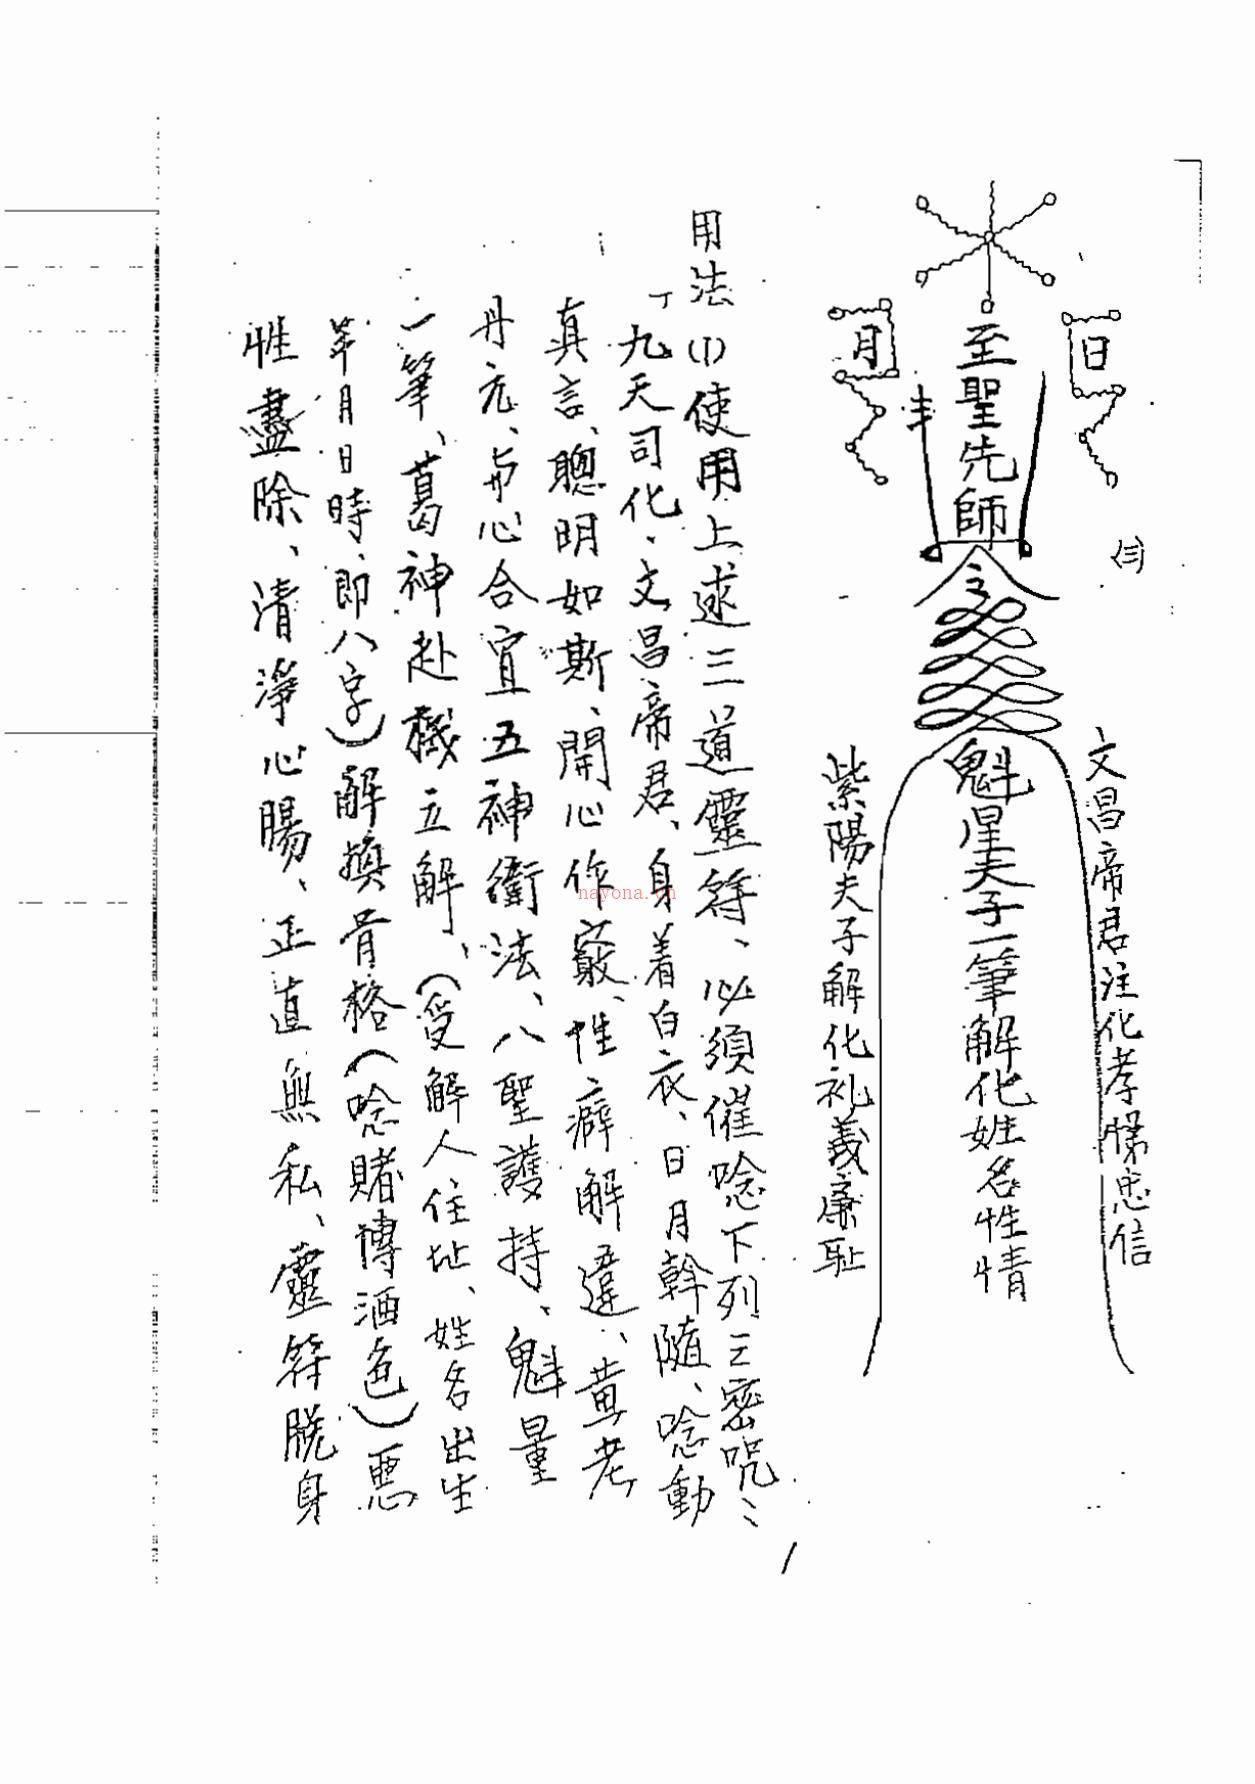 ㈢
日
至聖先師
月
令
文昌帝君注化孝悌忠信
魁星夫子一筆解化姓名性情
紫陽夫子解化礼義廉恥
用法(1)使用上述三道靈符、必須催唸下列三密咒:
「九天司化、文昌帝君、身着白衣、日月斡隨、唸動
真言、聰明如斯、開心作竅、性癖解違、黄老
丹元、与心合宜五神衛法、八聖護持、魁星
一筆、葛神赴機立解、(受解人住址、姓名出生
年月日時、即八字)解換骨格(唸賭博酒色)惡
性盡除、清淨心腸、正直無私、靈符脱身
nayona.cn